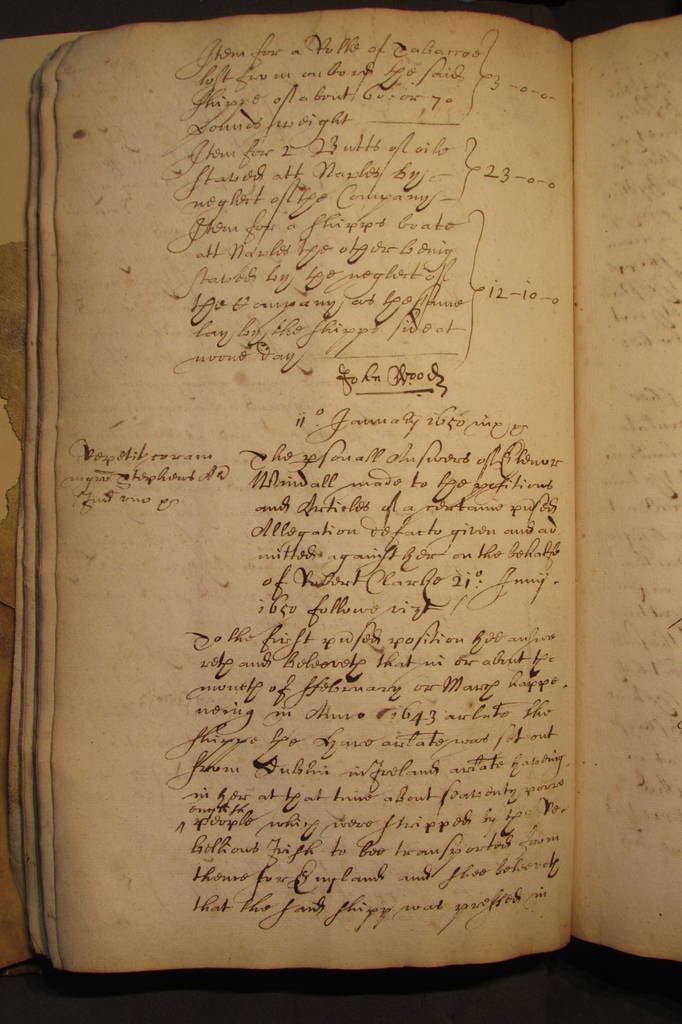 Item for a Rolle of Tabaccoe
lost from onbord the said
shippe of about 60: or 70
pounds weight
3-0-0-
Item for 2 Butts of oile
staved att Naples by
neglect of the Company
23-0-0
Item for a shipps boate
att Naples the other being
staved by the neglect of
the Company as the same
lay by the shipps side at
noone day
12-10-0
John Wood
11o: January 1650
Repetit coram
Stephens
The psonall Answers of Elenor
Windall made to the positions
and Articles of a certaine ptsed
Allegation defacto given and ad
mitted against her on the behalfe
of Robert Clarke 21o: Junij
1650 followe vizt
To the first ptsed position hee answe
reth and beleeveth that in or about the
moneth of ffebruary or March happe
neing in Anno 1643 arlate the
shippe the Hare arlate was set out
from Dublin in Ireland arlate haveing
in her at that time about seaventy poore
english
people which were stripped by the Re
bellious Irish to bee transported from
thence for England and shee beleeveth
that the said shipp was pressed in